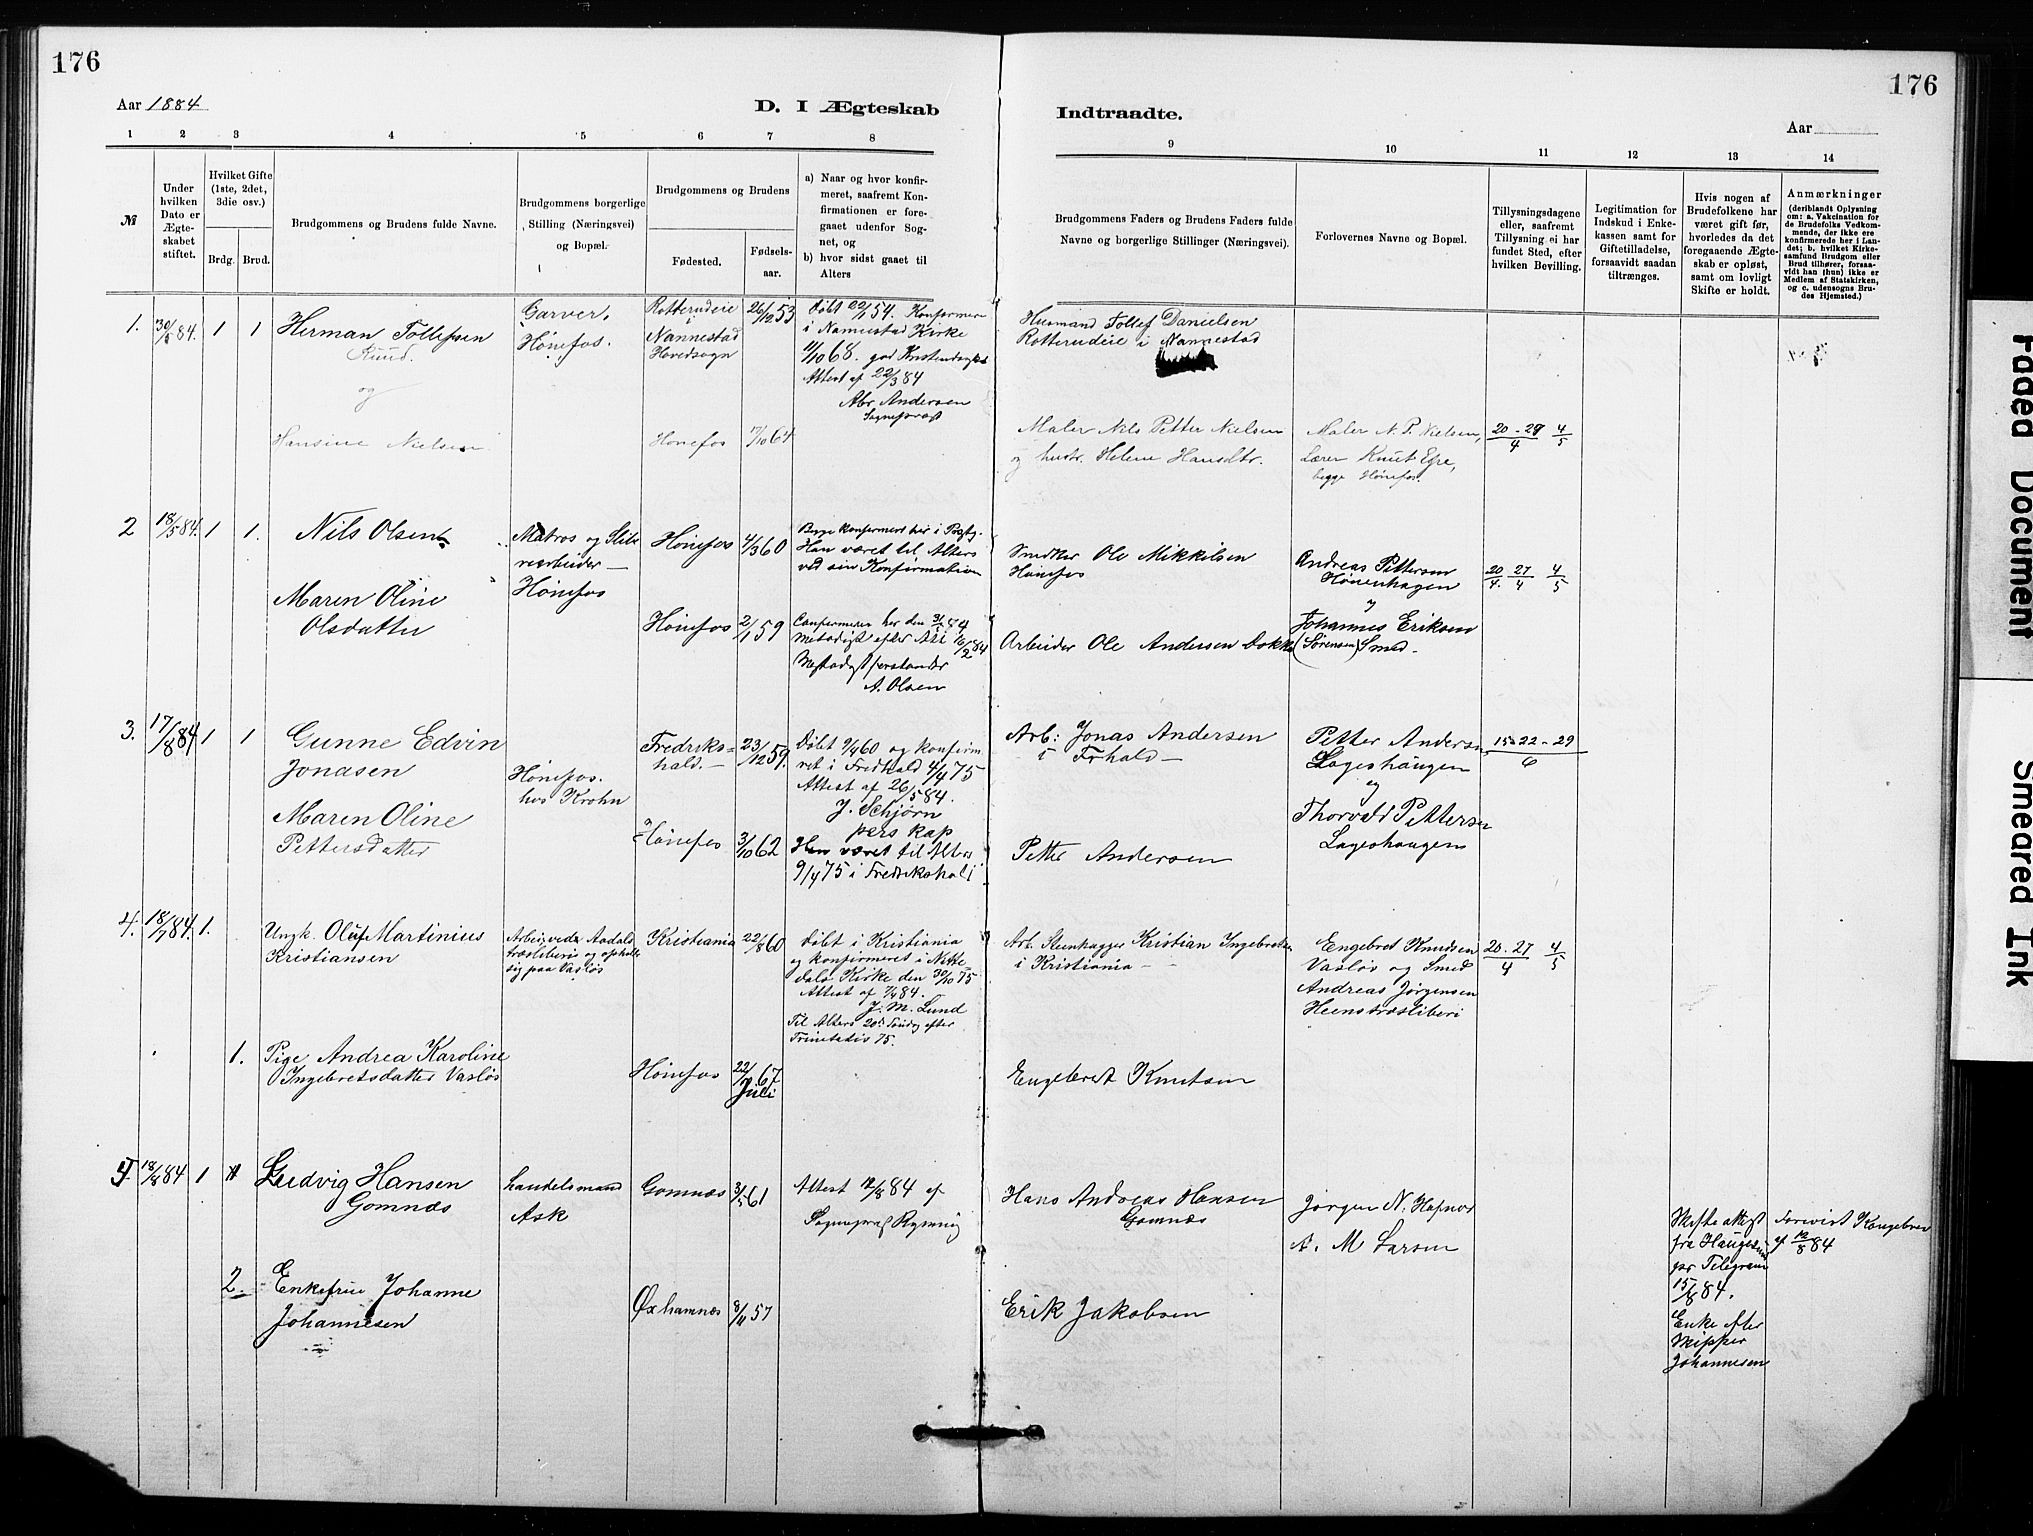 176
176
Aar 1884
D. I Ægteskab
Indtraadte.
Aar
1 2 3 4 5 6 7 8
9 10 11 12 13 14
№
Under hvilken Dato er Ægteskabet stiftet.
Hvilket Gifte (1ste, 2det, 3die osv.)
Brdg. Brud.
Brudgommens og Brudens fulde Navne.
Brudgommens borgerlige Stilling (Næringsvei) og Bopæl.
Brudgommens og Brudens
Fødested.
Fødsels-aar.
a) Naar og hvor konfirmeret, saafremt Konfirmationen er foregaaet udenfor Sognet, og
b) hvor sidst gaaet til Alters
Brudgommens Faders og Brudens Faders fulde Navne og borgerlige Stillinger (Næringsvei).
Forlovernes Navne og Bopæl.
Tillysningsdagene eller, saafremt Tillysning ei har fundet Sted, efter hvilken Bevilling.
Legitimation for Indskud i Enkekassen samt for Giftetilladelse, forsaavidt saadan tiltrænges.
Hvis nogen af Brudefolkene har været gift før, hvorledes da det foregaaende Ægteskab er opløst, samt om lovligt Skifte er holdt.
Anmærkninger
(deriblandt Oplysning om: a. Vakcination for de Brudefolks Vedkommende, der ikke ere konfirmerede her i Landet; b. hvilket Kirkesamfund Brudgom eller Brud tilhører, forsaavidt han (hun) ikke er Medlem af Statskirken, og c. udensogns Brudes Hjemsted.)
1. 30/5 84. 1 1
Herman Tollefsen
Ruud
og
Hansine Nielsen
Garver.
Hønefos.
Rotterudeie
i
Nannestad
Hovedsogn
26/12 53
Døbt 22/1 54. Konfirmere
i Nannestad Kirke
11/10 68. god Kristendomsk
Attest af 22/3 84
Abr. Andersen
Sogneprest
Hønefos 7/10 64
Husmand Tollef Danielsen
Rotterudeie i Nannestad
Maler Nils Petter Nielsen
og hustr. Helene Hansdtr.
Maler N. P. Nielsen,
Lærer Knut Egre,
begge Hønefos.
20 - 27/4 4/5
2 18/5 84. 1 1.
Nils Olsen
Maren Oline
Olsdatter
Matros og Slibe
riarbeider
Hønefos
Hønefos 4/3 60
Begge konfirmert her i Prstgj.
Han været til Alters
ved sin Konfirmation
Hønefos 2/1 59
Confirmeren her den
Metodist efter Att 16/2 84
Metodist forstander
A. Olsen
Snedker Ole Mikkelsen
Hønefos
Arbeider Ole Andersen Dokka
Andreas Pettersen
Hønenhagen
og
Johannes Eriksen
(Sørensen) Smed.
20/4. 27/4 4/5
3. 17/8 84. 1 1
Gunne Edvin
Jonasen
Maren Oline
Pettersdatter
Hønefos.
hos Krohn
Fredriks=
hald.
23/12 59.
Døbt 9/4 60 og konfirm
ret i Fredhald 4/4 75
Attest af 26/5 84.
J. Schjørn
pers kap
Han været til Alters
9/4 75 i Fredrikshald
Hønefos 3/10 62
Arb: Jonas Andersen
i Frhald
Petter Andersen
Petter Andersen
Lageshaugen
og
Thorvald Pettersen
Lageshaugen
15 22 - 29/6
4. 18/7 84. 1.
Ungk. Oluf Martinius
Kristiansen
Arbeid. ved Aadals
træsliberi og opholder
sig paa Vasløs
Kristiania 22/8 60
Døbt i Kristiania
og konfirmeret i Nitte
dals Kirke den 30/10 75
Attest af 7/4 84.
J. M. Lund
Til Alters 20d Søndg efter
Trinitatis 75.
Arb. Stenhugger Kristian Ingebretsen
i Kristiania
Engebret Knudsen
Vasløs og Smed
Andreas Jørgensen
Heenstræsliberi
20. 27/4 4/5
1. Pige Andrea Karoline
Ingebretsdatter Vasløs
Hønefos 22/7 67
Juli
Engebret Knutsen
5. 18/8 84 1
Ludvig Hansen
Gomnæs
Handelsmand
Ask
Gomnæs 3/5 61
Attest 12/8 84 af
Sogneprest Rynning
Hans Andreas Hansen
Gomnæs
Jørgen N. Hafnor
A. M Larsen
Skifte attest
fra Haugesund
pr Telegram
15/8 84.
Enke efter
Skipper
Johannesen
Forevist Kongebrev
af 12/8 84
2. Enkefrue Johanne
Johannesen
Øxhamnes 8/11 57
Erik Jakobsen
Faded Document
Smeared Ink